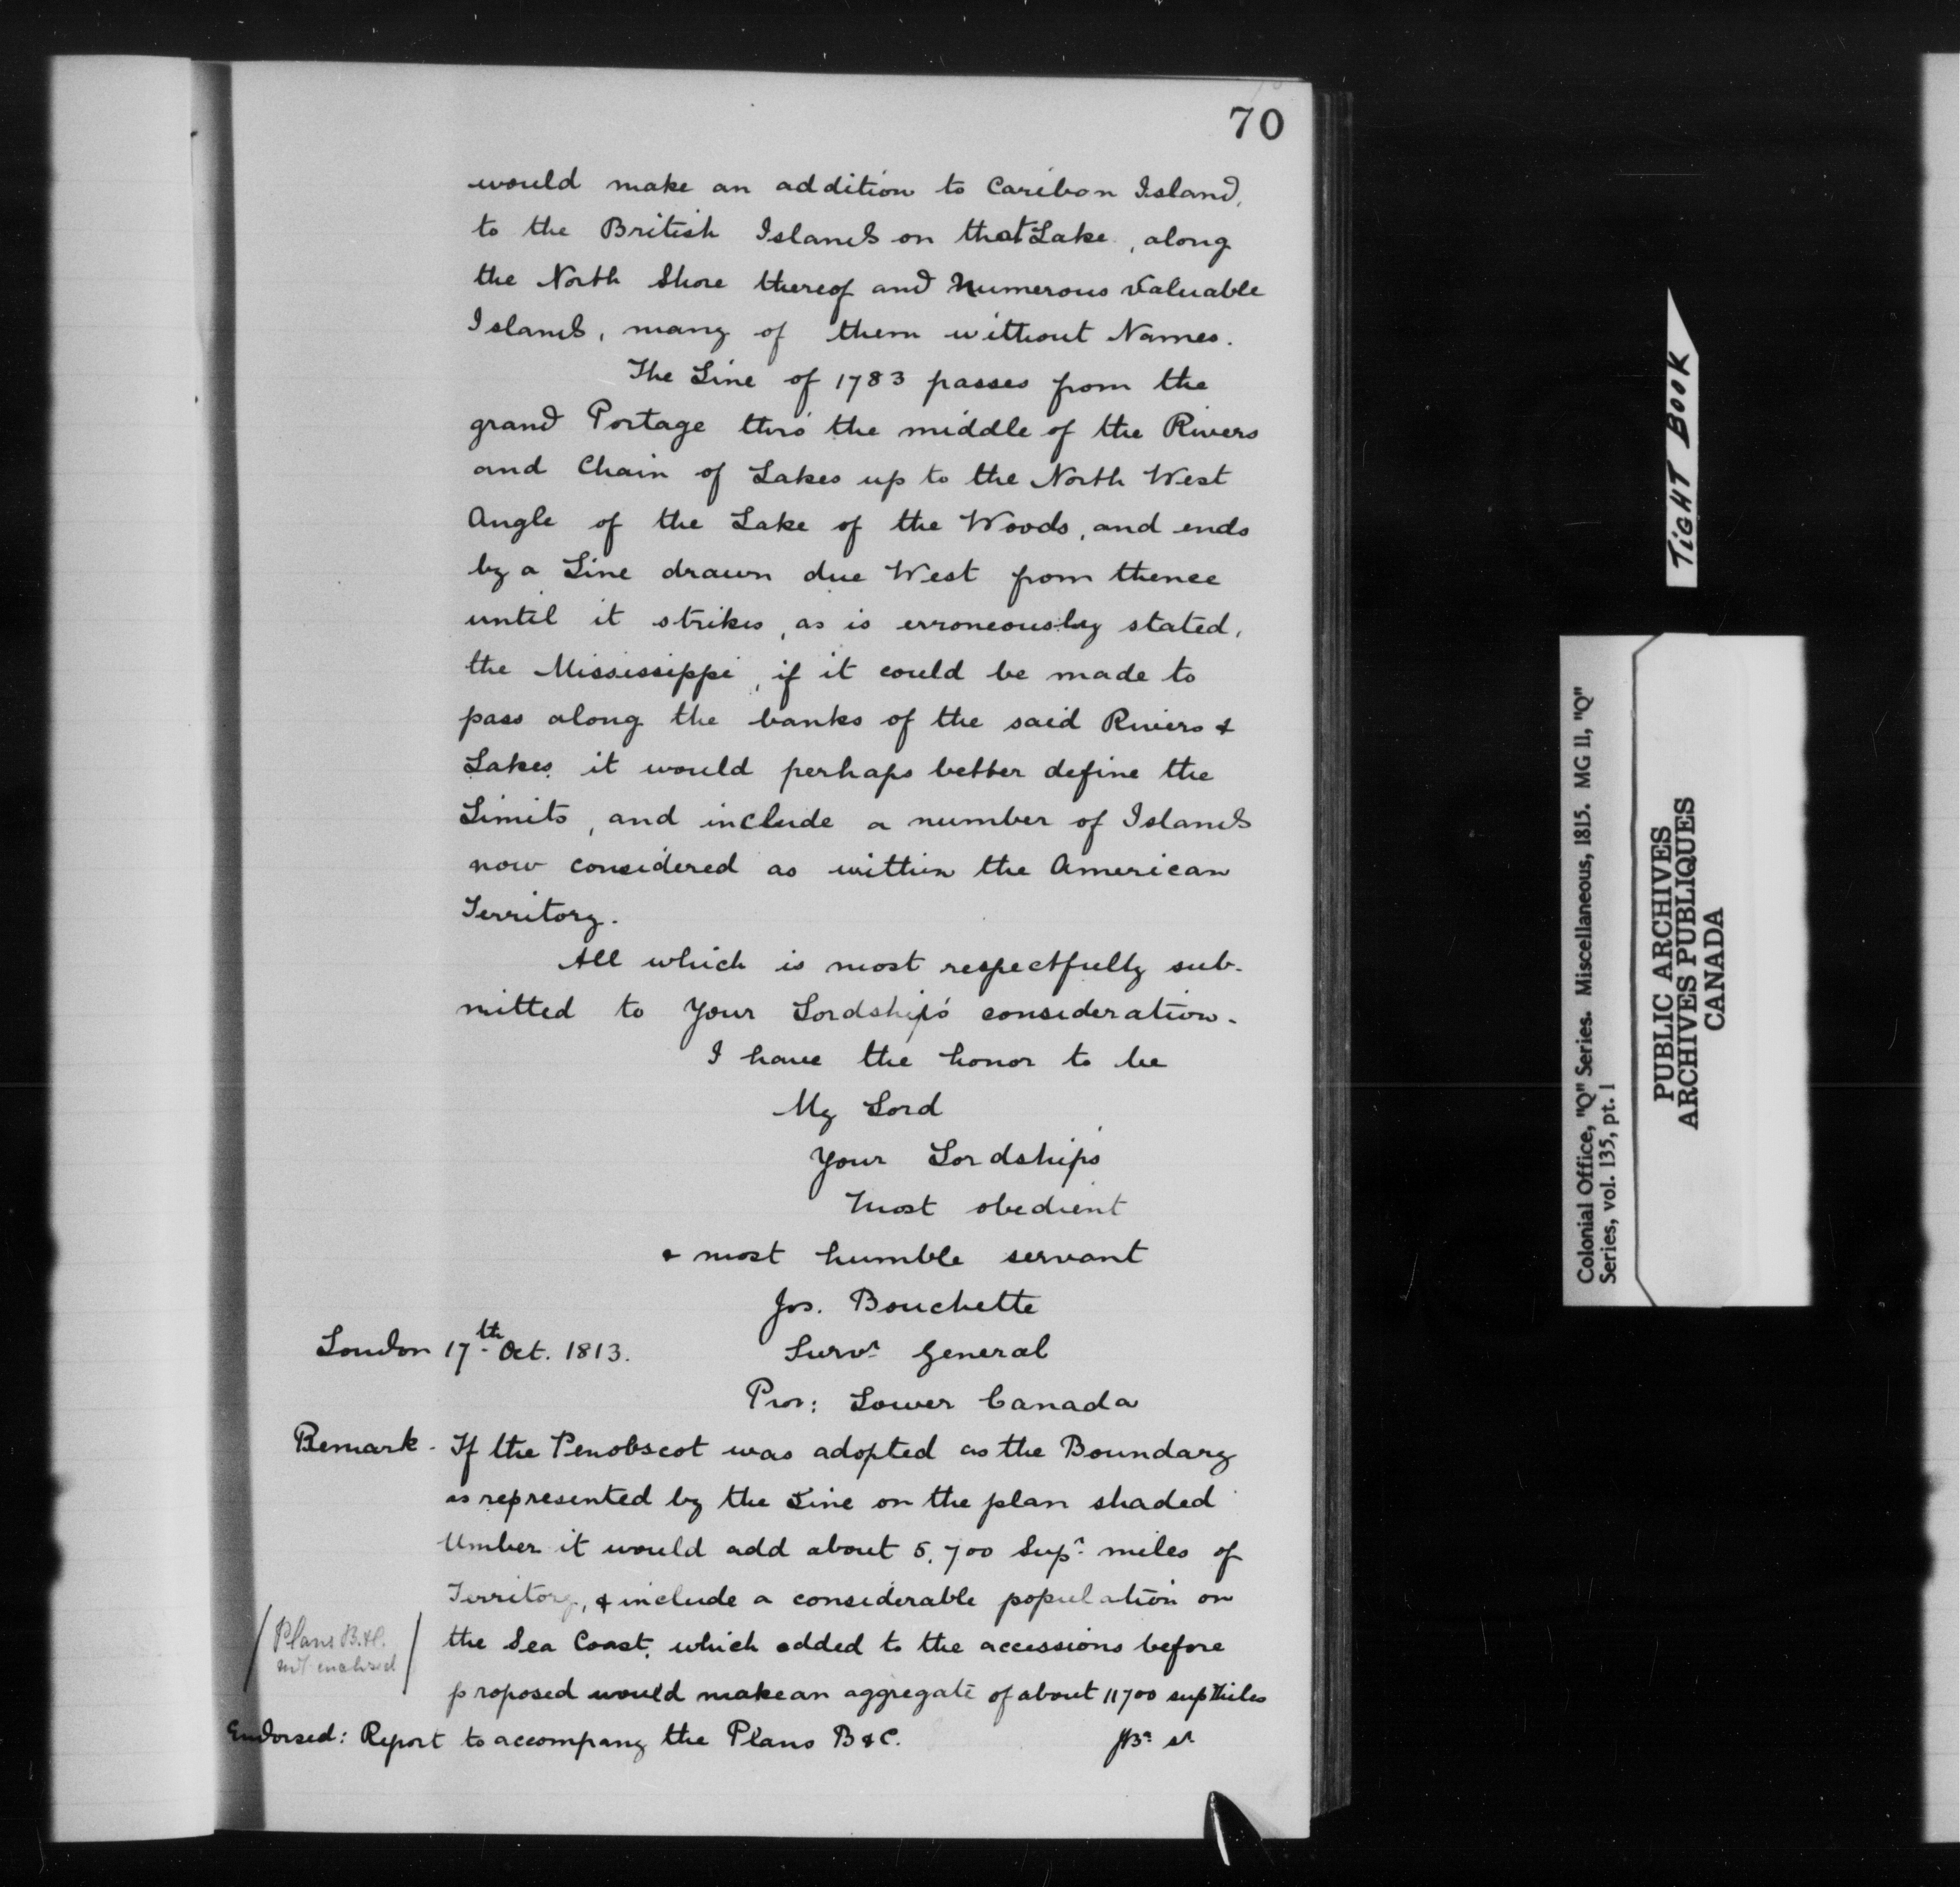 70
would make an addition to Caribon Island,
to the British Islands on that Lake, along
the North Shore thereof and Numerous Valuable
Islands, many of them without Names.
The Line of 1783 passes from the
grand Portage thro' the middle of the Rivers
and Chain of Lakes up to the North West
Angle of the Lake of the Woods, and ends
by a Line drawn due West from thence
until it strikes, as is erroneously stated,
the Mississippi, if it could be made to
pass along the banks of the said Rivers &
Lakes it would perhaps better define the
Limits, and include a number of Islands
now considered as within the American
Territory.
All which is most respectfully sub-
mitted to Your Lordship's consideration.
I have the honor to be
My Lord
Your Lordships
Most obedient
& most humble servant
Jos. Bouchette
London 17th Oct. 1813. Survr General
Pro: Lower Canada
Remark - If the Penobscot was adopted as the Boundary
as represented by the Line on the plan shaded
Umber it would add about 5,700 Supr miles of
Territory, & include a considerable population on
the Sea Coast, which added to the accessions before
proposed would make an aggregate of about 11700 sup Miles
Plans B. & C.
not enclosed
Endorsed: Report to accompany the Plans B & C.
TIGHT BOOK
Colonial Office, "Q" Series. Miscellaneous, 1815. MG 11, "Q"
Series, vol. 135, pt. 1
PUBLIC ARCHIVES
ARCHIVES PUBLIQUES
CANADA